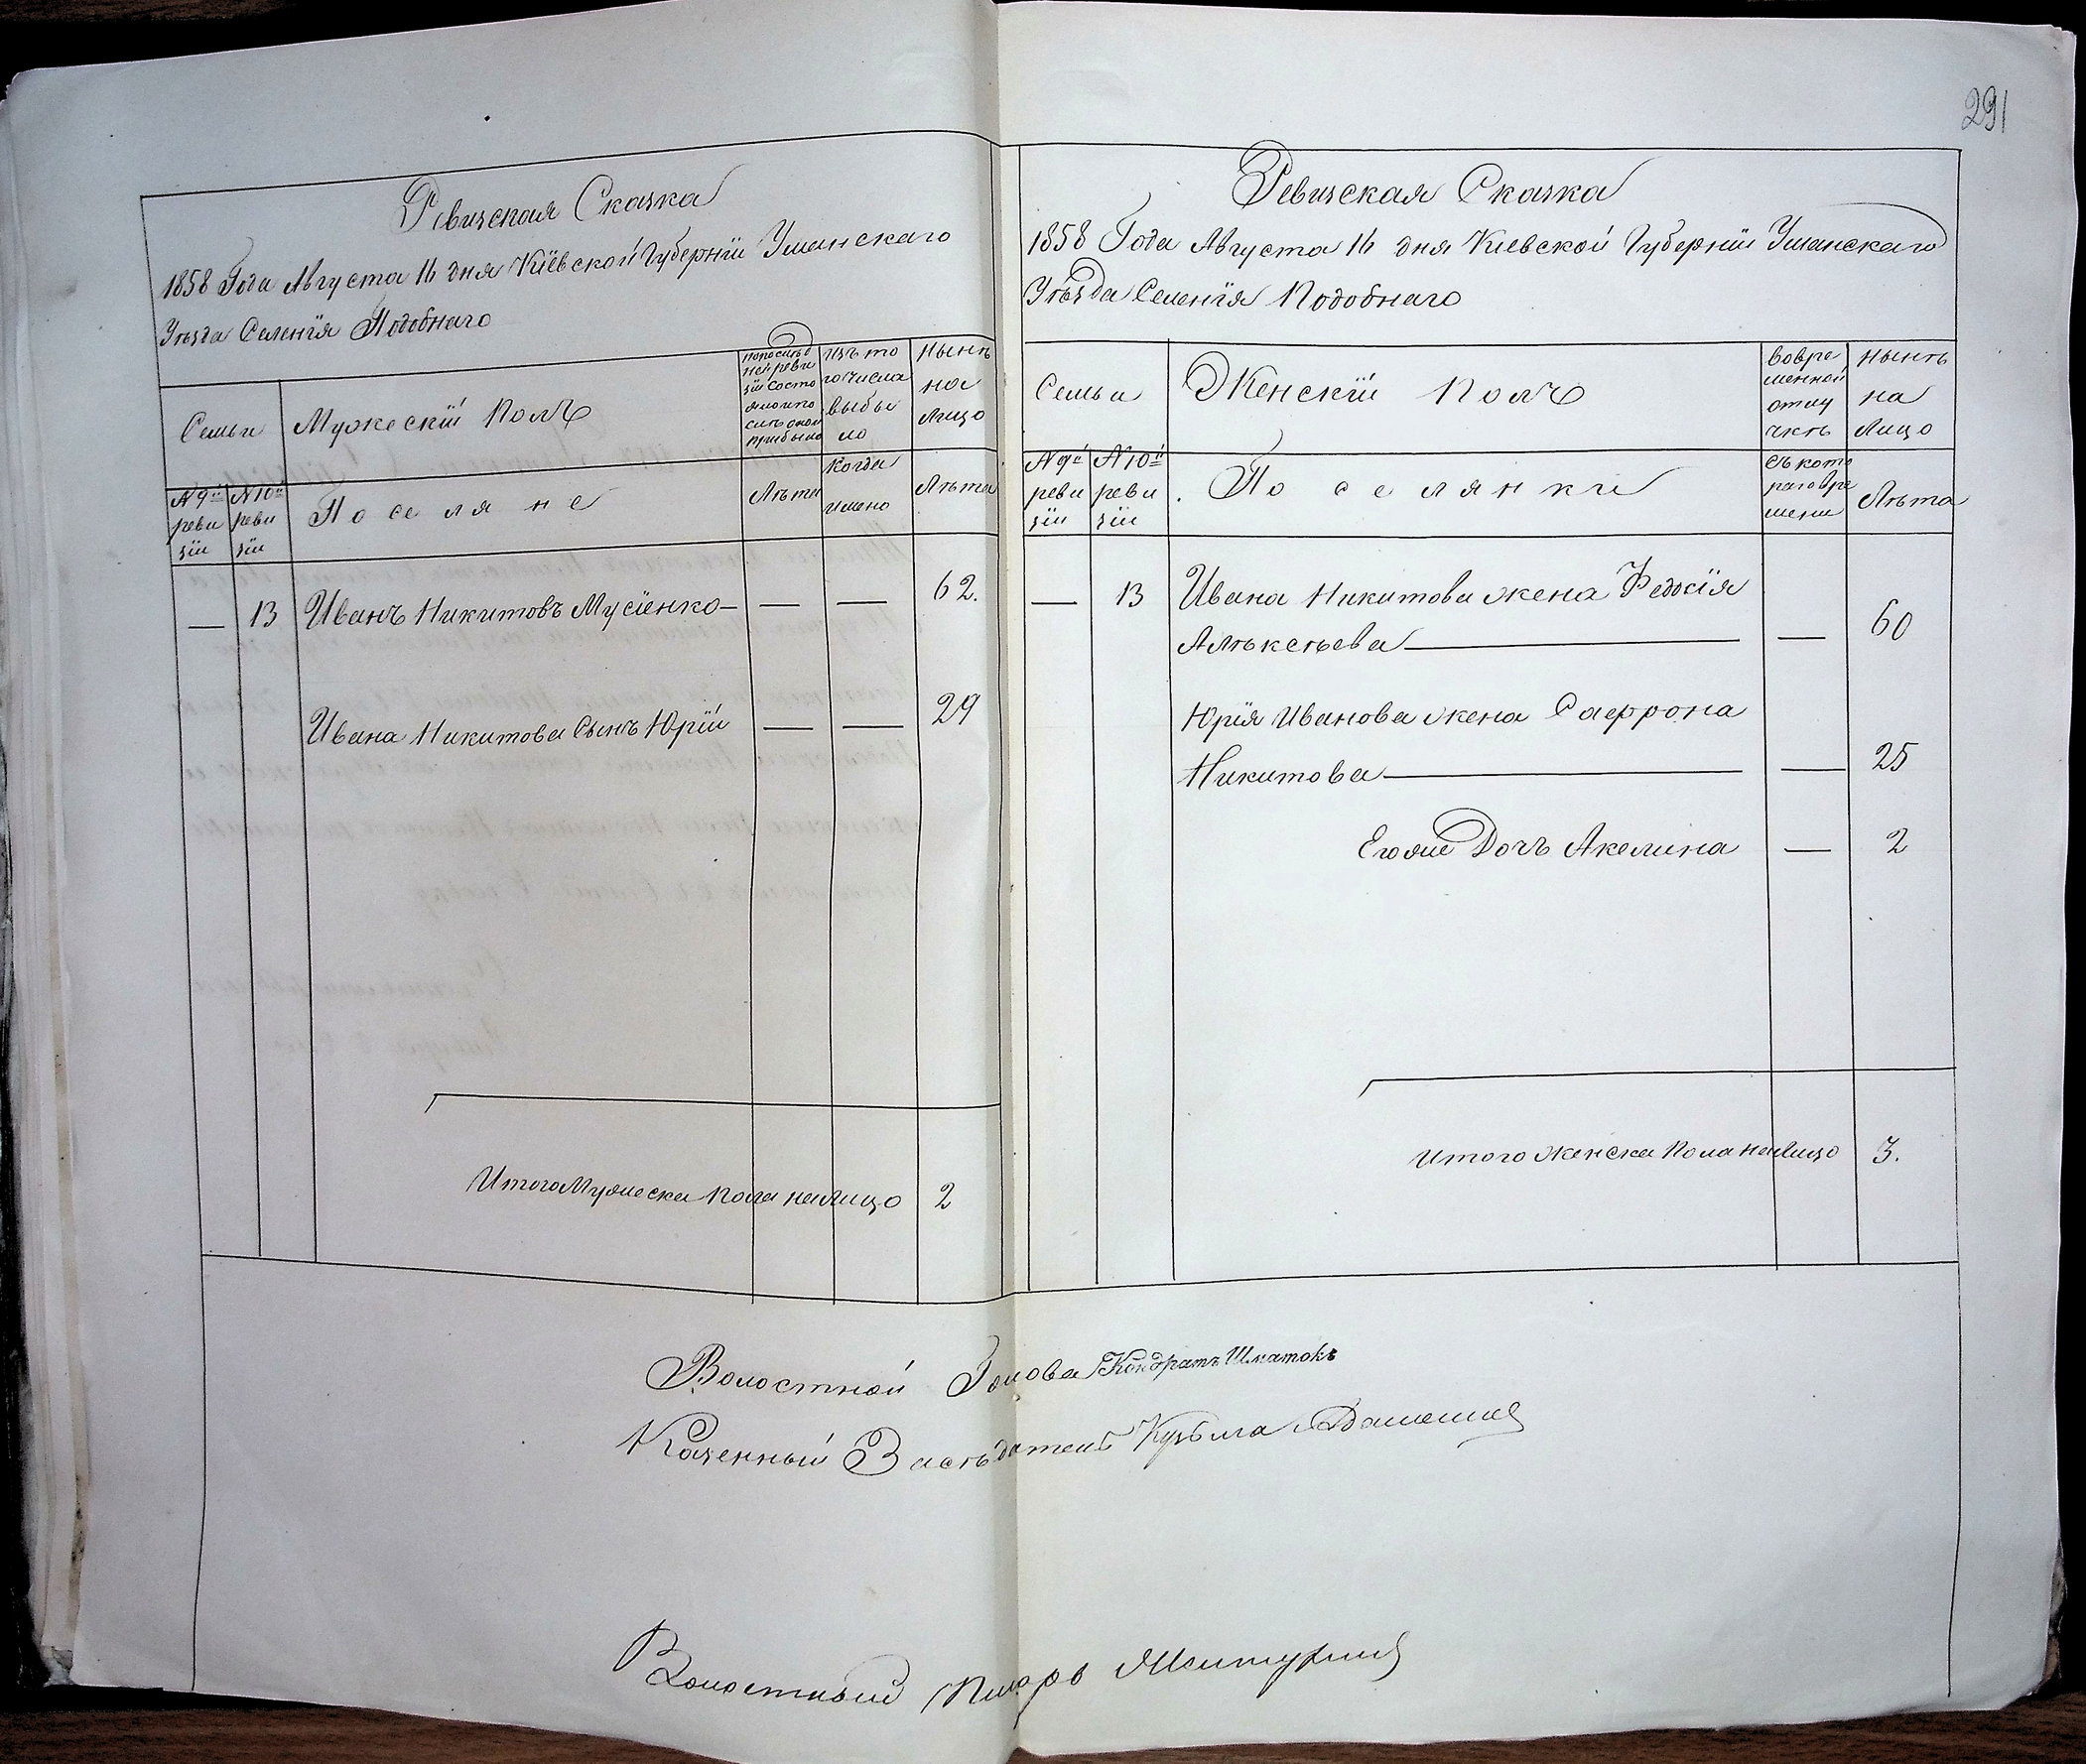 291
Ревизская Сказка
1858 Года Августа 16 дня Кіевской Губерніи Уманскаго
Уѣзда Селенія Подобнаго
Семьи
Мужескій Полъ
Изъ то
го числа
выбы
ло
Нынѣ
на
Лицо
№ 9й
реви
зіи
№ 10й
реви
зіи
Поселяне
Лѣта
Когда
имено
Лѣта
—
13
Иванъ Никитовъ Мусіенко —
—
—
62.
Ивана Никитова Сынъ Юрій
—
—
29
Итого Мужеска пола на лицо
2
Ревизская Сказка
1858 Года Августа 16 дня Кіевской Губерніи Уманскаго
Уѣзда Селенія Подобнаго
Семьи
Женскій Полъ
Вовре
менной
отлу
чкѣ
Нынѣ
на
Лицо
№ 9й
реви
зіи
№ 10й
реви
зіи
Поселянки
Съ кото
раго вре
мени
Лѣта
—
13
Ивана Никитова жена Федосія
Алѣксѣева
—
60
Юрія Иванова жена Саффрона
Никитова
—
25
Егоже Дочь Акелина
—
2
Итого женска Пола на Лицо
3.
Волостной Голова Кондратъ Шматокъ
Казенный Засѣдатель Кузьма
Волостный Писарь